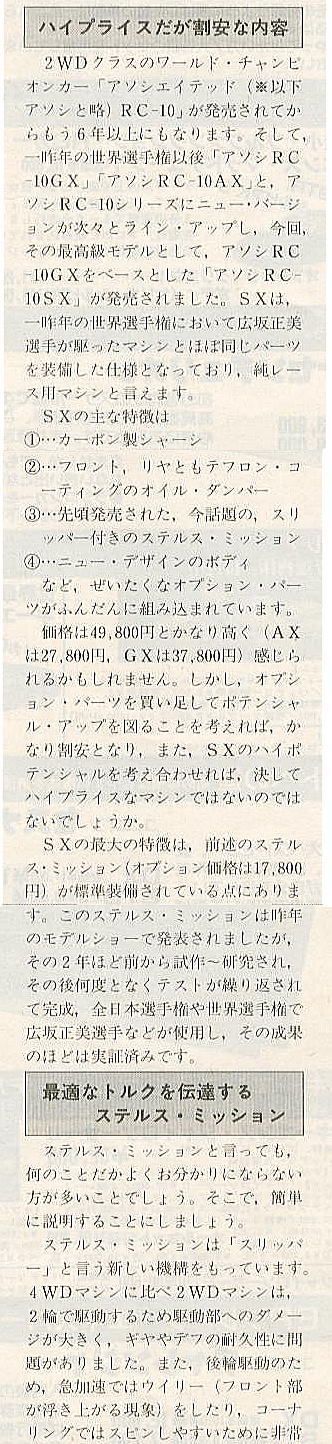 ハイプライスだが割安な内容
2WDクラスのワールド・チャンピ
オンカー「アソシエイテッド（※以下
アソシと略）RC-10」が発売されてか
らもう6年以上にもなります。そして,
一昨年の世界選手権以後「アソシRC
-10GX」「アソシRC-10AX」と, ア
ソシRC-10シリーズにニュー・バージ
ョンが次々とライン・アップし, 今回,
その最高級モデルとして, アソシRC
-10GXをベースとした「アソシRC-
10SX」が発売されました。SXは,
一昨年の世界選手権において広坂正美
選手が駆ったマシンとほぼ同じパーツ
を装備した仕様となっており, 純レー
ス用マシンと言えます。
SXの主な特徴は
①…カーボン製シャーシ
②…フロント, リヤともテフロン・コ
ーティングのオイル・ダンパー
③…先頃発売された, 今話題の, スリ
ッパー付きのステルス・ミッション
④…ニュー・デザインのボディ
など, ぜいたくなオプション・パー
ツがふんだんに組み込まれています。
価格は49,800円とかなり高く（AX
は27,800円, GXは37,800円）感じら
れるかもしれません。しかし, オプシ
ョン・パーツを買い足してポテンシャ
ル・アップを図ることを考えれば, か
なり割安となり, また, SXのハイポ
テンシャルを考え合わせれば, 決して
ハイプライスなマシンではないのでは
ないでしょうか。
SXの最大の特徴は, 前述のステル
ス・ミッション（オプション価格は17,800
円）が標準装備されている点にありま
す。このステルス・ミッションは昨年
のモデルショーで発表されましたが,
その2年ほど前から試作～研究され,
その後何度となくテストが繰り返され
て完成, 全日本選手権や世界選手権で
広坂正美選手などが使用し, その成果
のほどは実証済みです。
最適なトルクを伝達する
ステルス・ミッション
ステルス・ミッションと言っても,
何のことだかよくお分かりにならない
方が多いことでしょう。そこで, 簡単
に説明することにしましょう。
ステルス・ミッションは「スリッパ
ー」と言う新しい機構をもっています。
4WDマシンに比べ2WDマシンは,
2輪で駆動するため駆動部へのダメー
ジが大きく, ギヤやデフの耐久性に問
題がありました。また, 後輪駆動のた
め, 急加速ではウイリー（フロント部
が浮き上がる現象）をしたり, コーナ
リングではスピンしやすいために非常